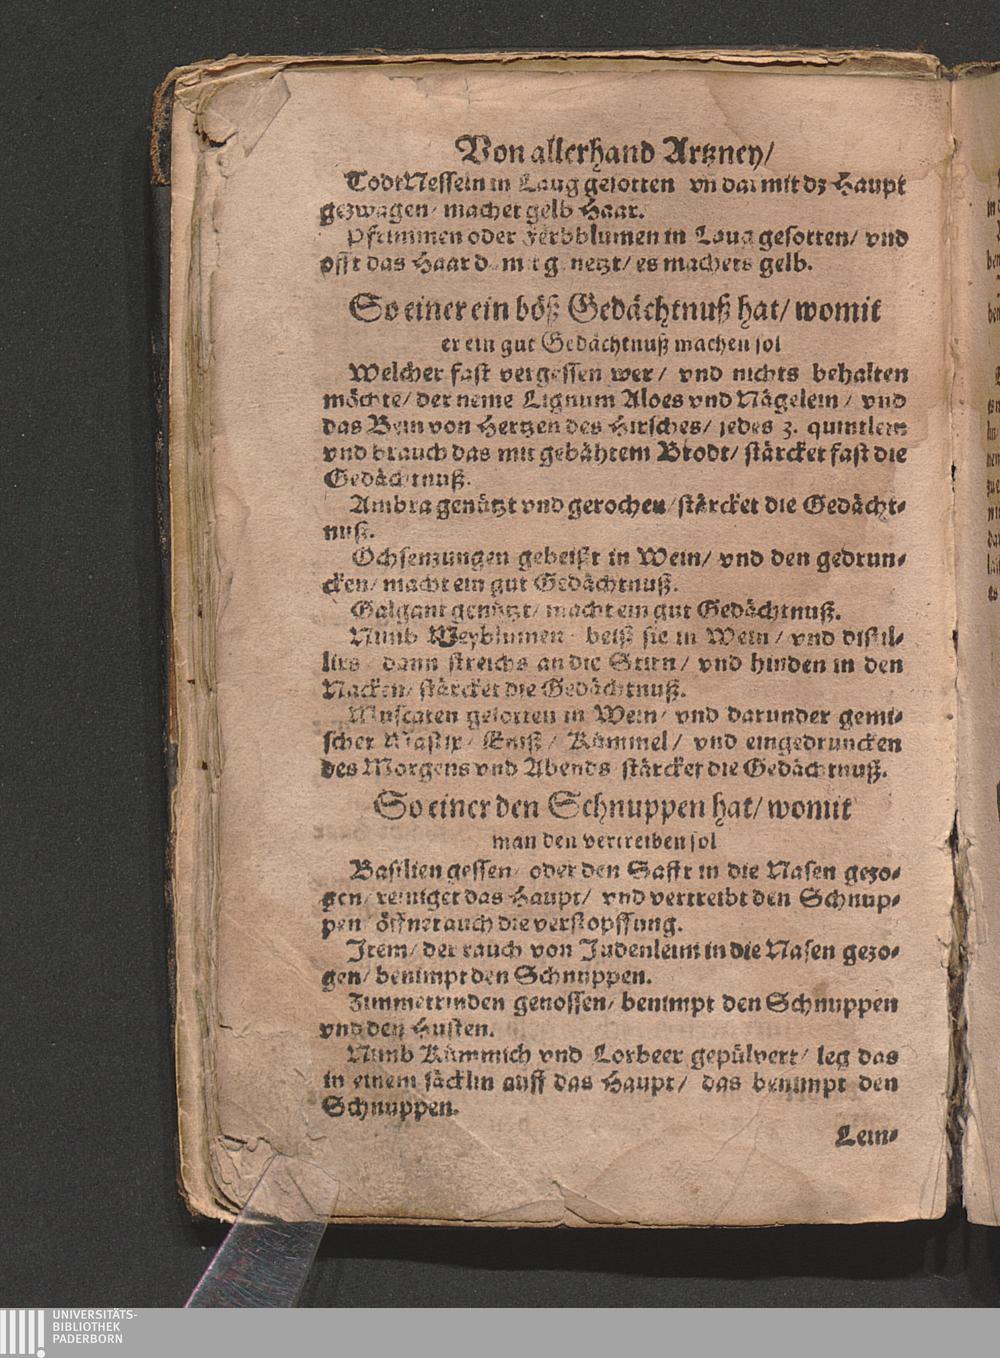 Von allerhand Artzney/
TodtNesseln in Laug gesotten vn darmit dz Haupt
gezwagen/ machet gelb Haar.
Pfrimmen oder Ferbblumen in Laug gesotten/ vnd
offt das Haar damit genetzt/ es machets gelb.
So einer ein böß Gedächtnuß hat/ womit
er ein gut Gedächtnuß machen sol
Welcher fast vergessen wer/ vnd nichts behalten
möchte/ der neme Lignum Aloes vnd Nägelein/ vnd
das Bein von Hertzen des Hirsches/ jedes 3. quintlein
vnd brauch das mit gebähtem Brodt/ stärcket fast die
Gedächtnuß.
Ambra genützt vnd gerochen/ stärcket die Gedächt-
nuß.
Ochsenzungen gebeißt in Wein/ vnd den gedrun-
cken/ macht ein gut Gedächtnuß.
Galgant genützt/ macht ein gut Gedächtnuß.
Nimb Meyblumen beiß sie in Wein/ vnd distil-
lirs/ dann streichs an die Stirn/ vnd hinden in den
Nacken/ stärcket die Gedächtnuß.
Muscaten gesotten in Wein/ vnd darunder gemi-
schet Mastix/ Eniß/ Kümmel/ vnd eingedruncken
des Morgens vnd Abends stärcket die Gedächtnuß.
So einer den Schnuppen hat/ womit
man den vertreiben sol
Basilien gessen/ oder den Safft in die Nasen gezo-
gen/ reiniget das Haupt/ vnd vertreibt den Schnup-
pen/ öffnet auch die verstopffung.
Item/ der rauch von Judenleim in die Nasen gezo-
gen/ benimpt den Schnuppen.
Zimmetrinden genossen/ benimpt den Schnuppen
vnd den Husten.
Nimb Kümmich vnd Lorbeer gepülvert/ leg das
in einem säcklin auff das Haupt/ das benimpt den
Schnuppen.
Lein-
UNIVERSITÄTS-
BIBLIOTHEK
PADERBORN